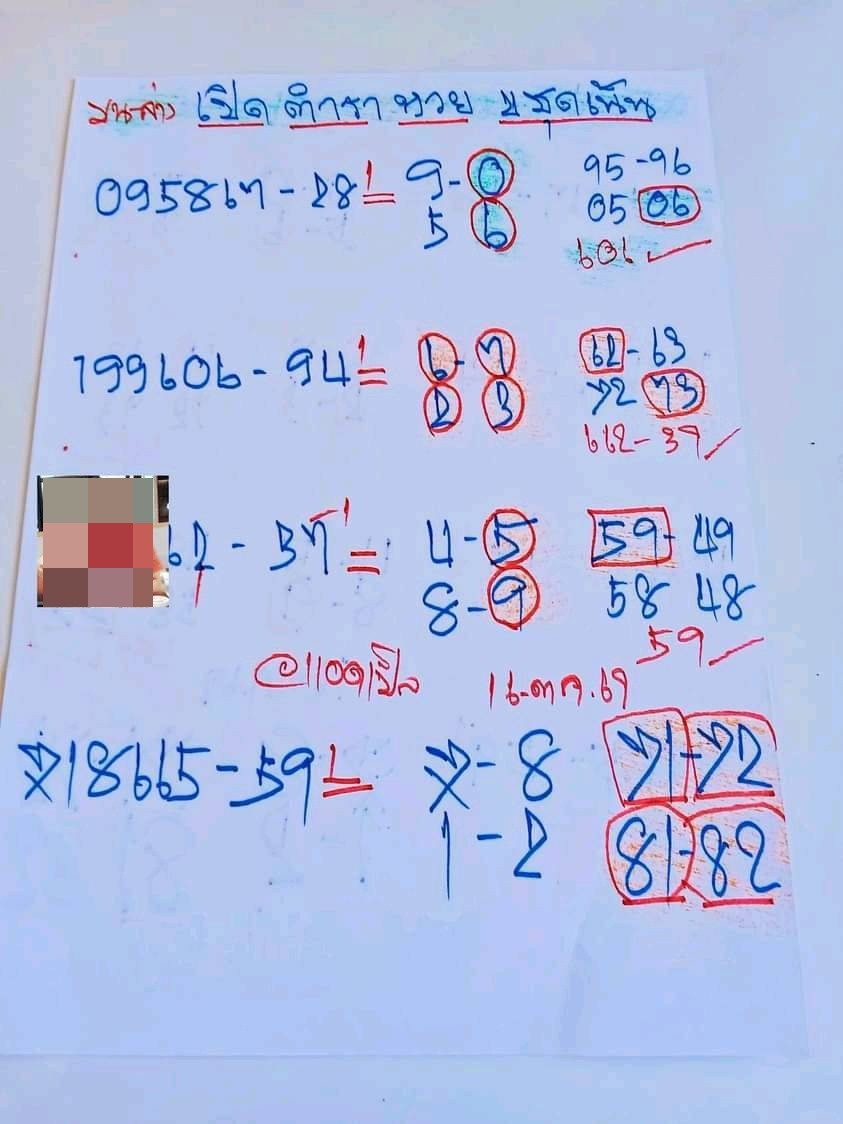 บน-ล่าง เปิด ตำรา หวย 2 ชุดเน้น
095867 - 28 = 9 - 0 95 - 96
5 6 05 06
606
199606 - 94 = 6 - 7 62 - 63
2 3 72 73
662 - 37
62 - 37 = 4 - 5 59 - 49
8 - 9 58 48
59
16 ต.ค. 67
718665 - 59 = 7 - 8 71 - 72
1 - 2 81 - 82